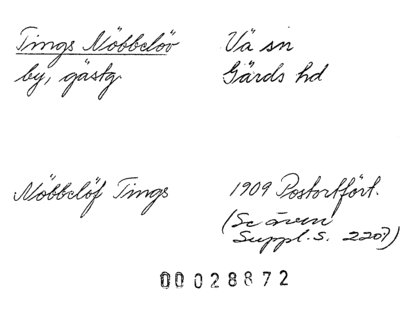 Tings Nöbbelöv Vä sn
by, gästg. Gärds hd
Nöbbelöf Tings 1909 Postortfört.
(Se även
Suppl. S. 2207)
00028872